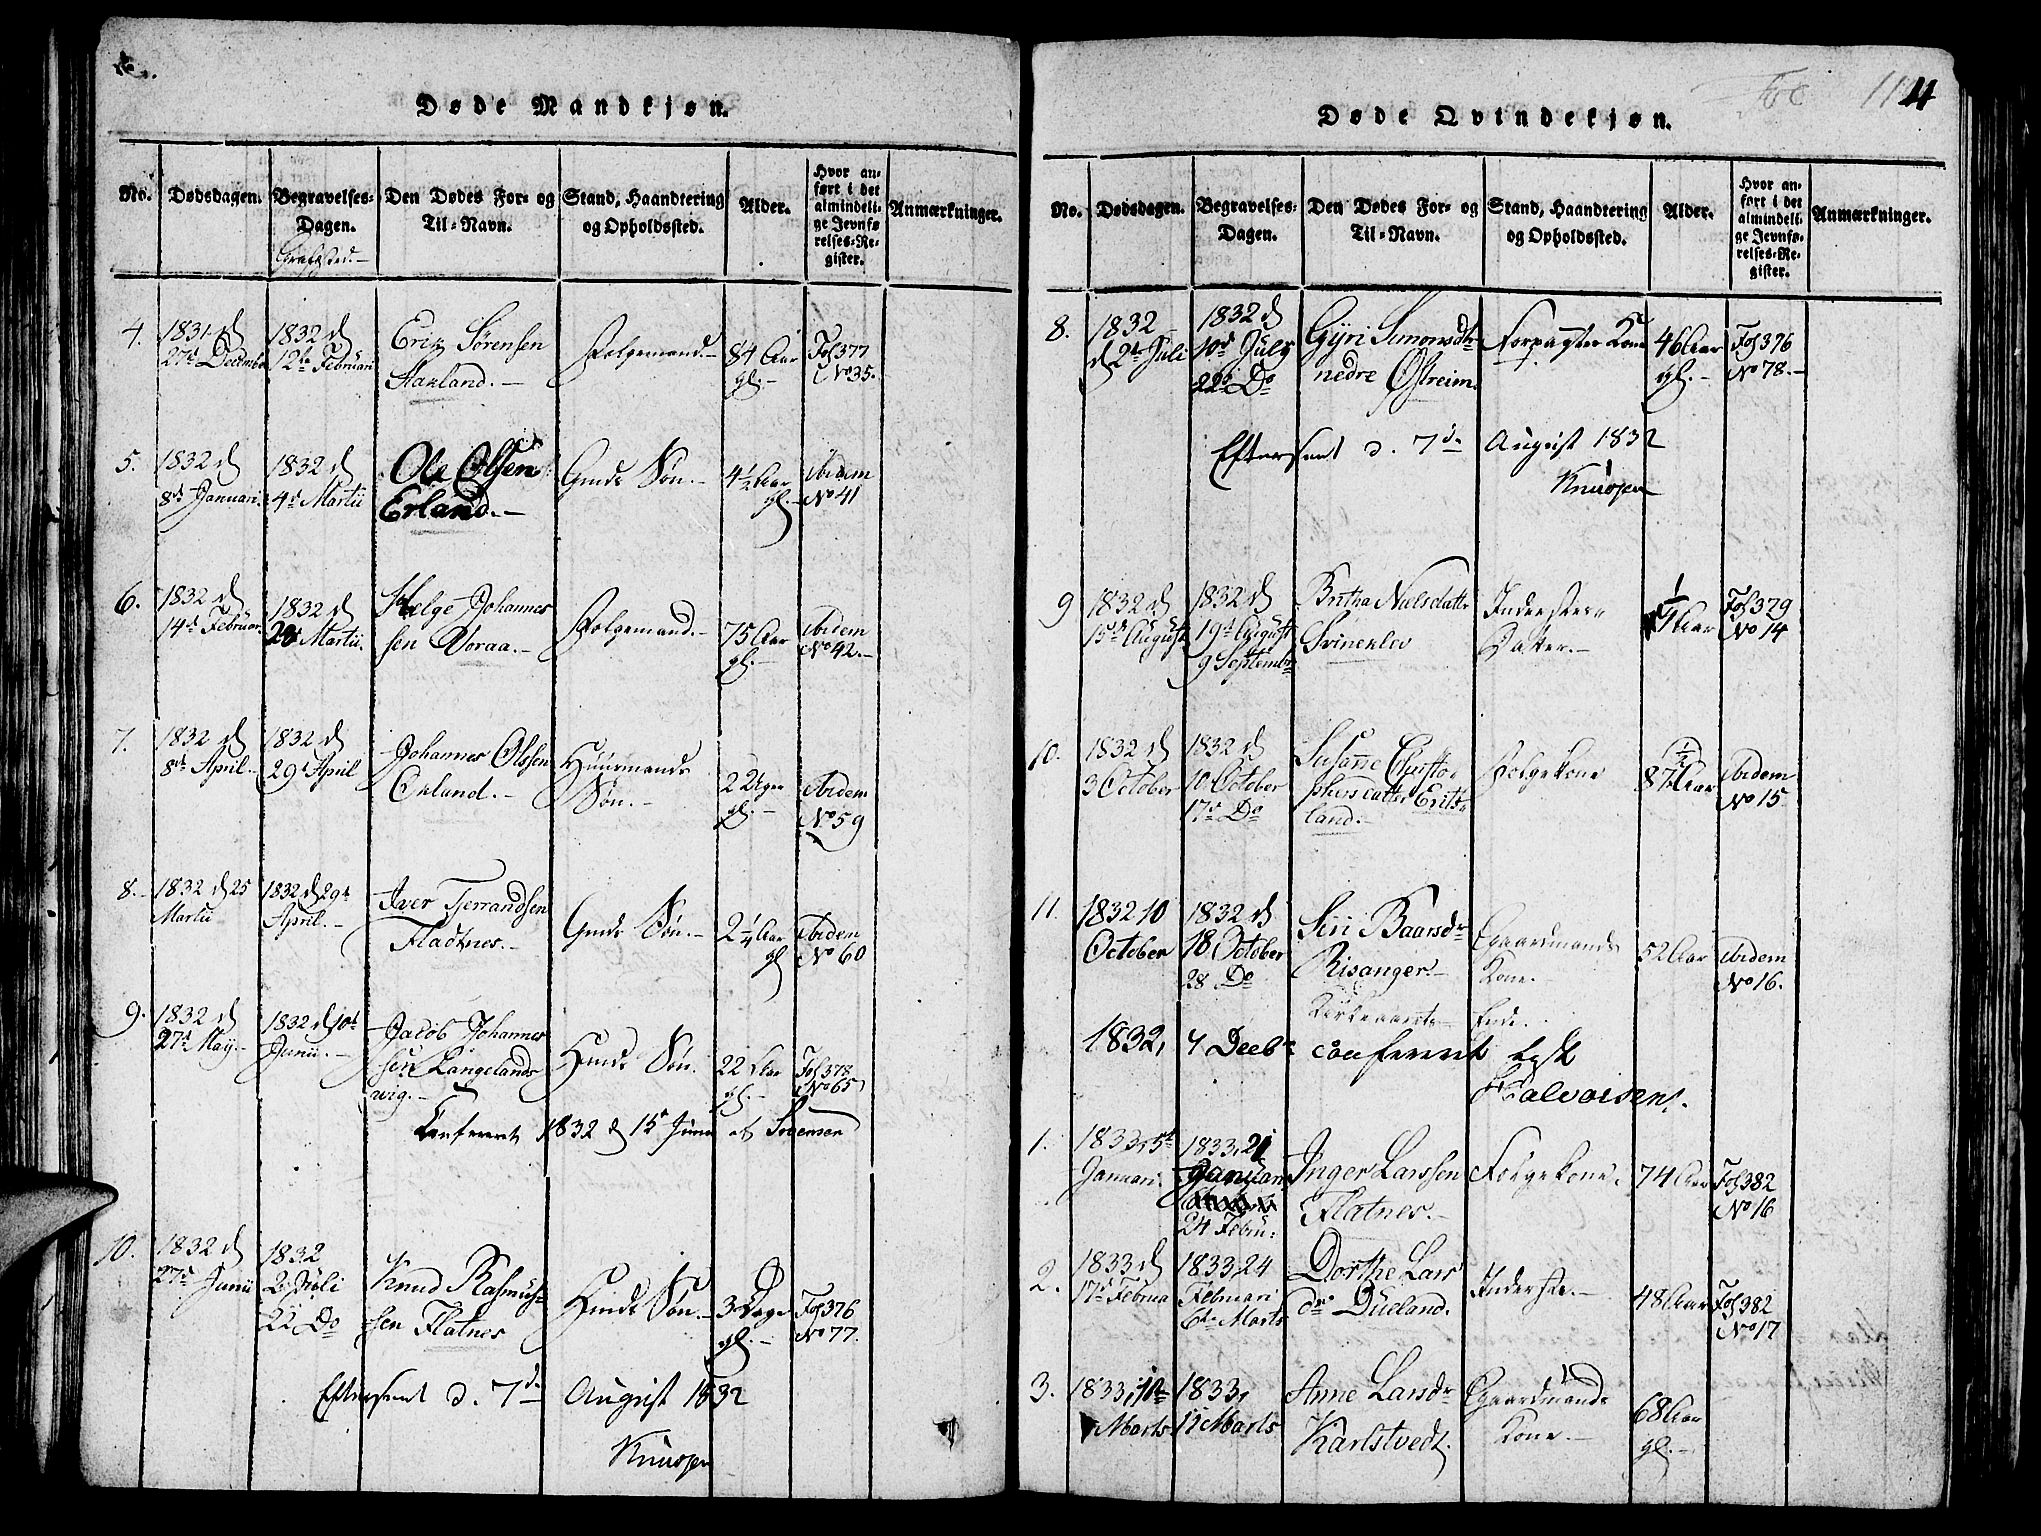 Døde Mandkjøn.
No.
Dødsdagen.
Begravelses-
Dagen.
Den Dødes For- og
Til-Navn.
Stand, Haandtering
og Opholdssted.
Alder.
Hvor an-
ført i det
almindeli-
ge Jevnfø-
relses-Re-
gister.
Anmærkninger.
4.
1831 d
27d Decembr
1832 d
12te Februari
Erik Sørensen
Aakland.
Folgemand.
84 Aar
gl.
Fol 377
No 35.
5.
1832 d
8d Januari
1832 d
4d Martii
Ole Olsen
Erland.
Gmds Søn.
4½ Aar
gl.
ibidem
No 41
6.
1832 d
14d Februar.
1832 d
Martii.
Helge Johannes
sen Voraa.
Folgemand.
75 Aar
gl.
ibidem
No 42.
7.
1832 d
8d April
1832 d
29d April
Johannes Olssen
Huusmands
Søn.
2 Uger
gl.
ibidem
No 59
8.
1832 d 25
Martii
1832 d 29d
April.
Iver Tjerrandsen
Fladtnes.
Gmds Søn.
2¼ Aar
gl
ibidem
No 60
9.
1832 d
27d May
1832 d 10d
Junii.
Jacob Johannes
sen Langelands
wig.
Hmds Søn.
22 Aar
gl.
Fol 378
No 65
Confereret 1832 d 15 Juni af Sørensen
10.
1832 d
27d Junii
1832
2 Juli
22 Do
Knud Rasmus-
sen Flatnes
Hmds Søn.
3 Dage
gl.
Fol 376
No 77.
Eftersent d. 7de August 1832
Knudsen
11
Døde Qvindekjøn.
No.
Dødsdagen.
Begravelses-
Dagen.
Den Dødes For- og
Til-Navn.
Stand, Haandtering
og Opholdssted.
Alder.
Hvor an-
ført i det
almindeli-
ge Jevnfø-
relses-Re-
gister.
Anmærkninger.
8.
1832
d 2d Juli
1832 d
10d July
22d Do
Gyri Simonsdtr
nedre Østreim
Forpagter Kone
46 Aar
gl.
Fol 376
No 78.
Eftersent d. 7de August 1832
Knudsen
9
1832 d
15d August
1832 d
19d August
9 Septembr
Britha Nielsdatter
Svineklev
Inderster
Datter.
Aar
Fol 379
No 14
10.
1832 d
3 October
1832 d
10 October
17d Do
Susanne Christo-
phersdatter Erits-
land.
Folgekone
87½ Aar
ibidem
No 15
11.
1832 10
October
1832 d
18 October
28 Do
Siri Baarsdr
Risanger
Gaardmands
Kone.
52 Aar
ibidem
No 16.
Kirkeaarets Ende.
1832, 7 Decbr confereret
Halvorsen.
1.
1833, 5t
Januari.
1833, 21
Januari
24 Febru:
Inger Larssen
Flatnes.
Folgekone.
74 Aar
Fol 382
No 16
2.
1833 d
17d Februa
1833, 24
Februari
6te Marts
Dorthe Lars
dr Dueland.
Inderste.
48 Aar
Fol 382
No 17
3.
1833, 10
Marts
1833,
12 Marts
Anne Larsdr
Karlstvedt.
Gaardmands
Kone.
68 Aar
gl.